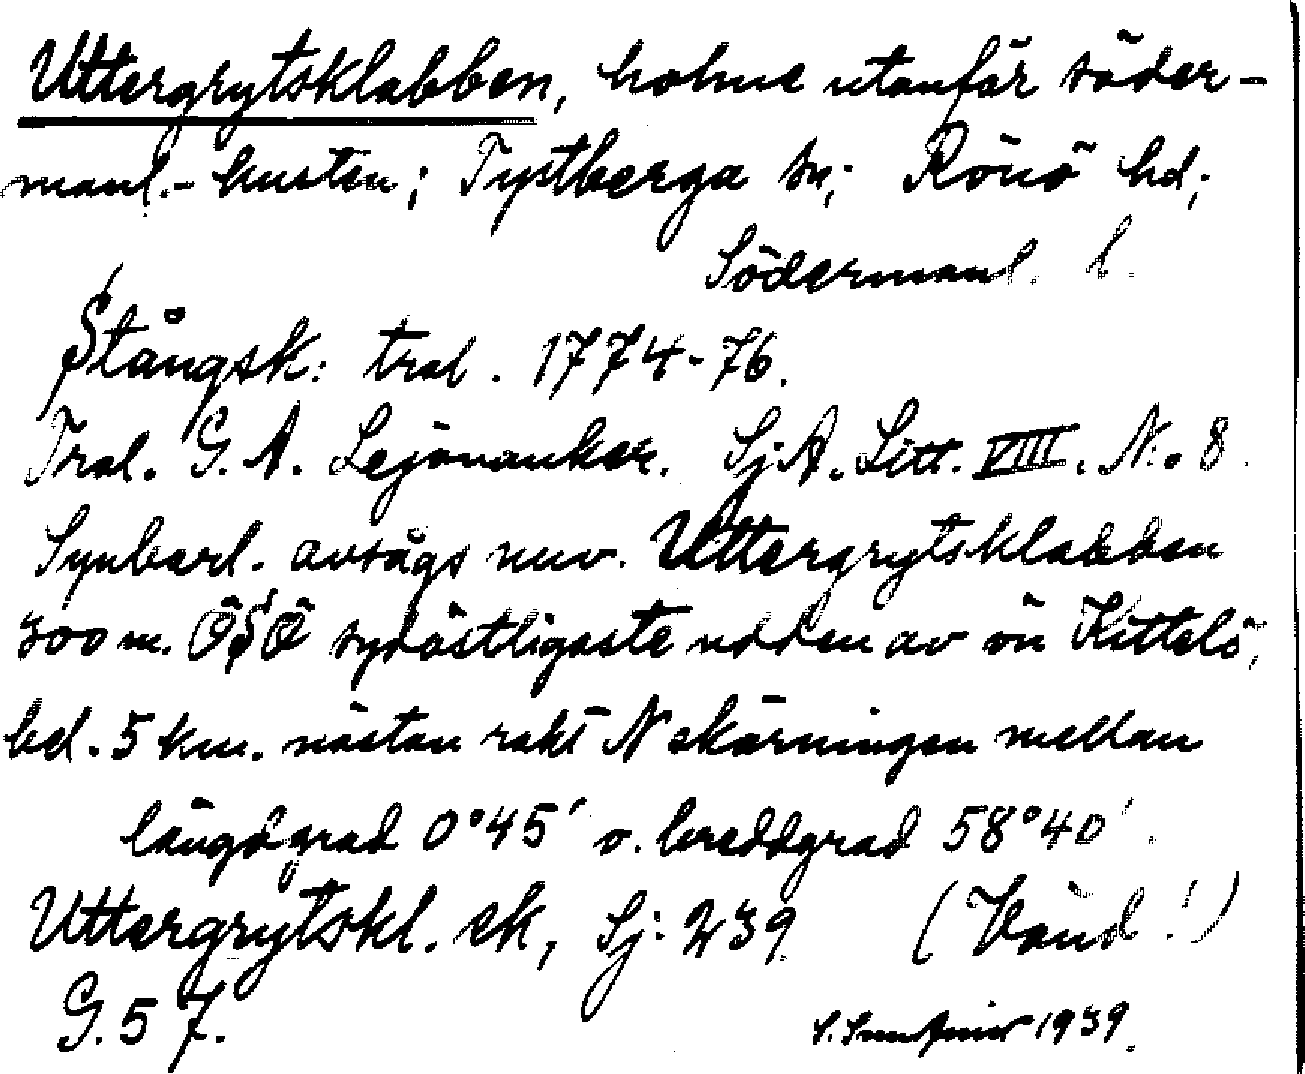 Uttergrytsklabben, holme utanför söder-
manl.- kusten; Tystberga sn; Rönö hd;
Södermanl. l.
Stångsk: trol. 1774-76.
Trol. G. A. Lejonanker. SjA. Litt. VIII. N:o 8.
Synbarl. avsågs nuv. Uttergrytsklabben
300 m. ÖSÖ sydöstligaste udden av ön Kittelö,
bel. 5 km. nästan rakt N skärningen mellan
längdgrad 0°45' o. breddgrad 58°40'.
Uttergrytskl. ek, Sj: 239 (Vänd!)
G. 57. 1939.